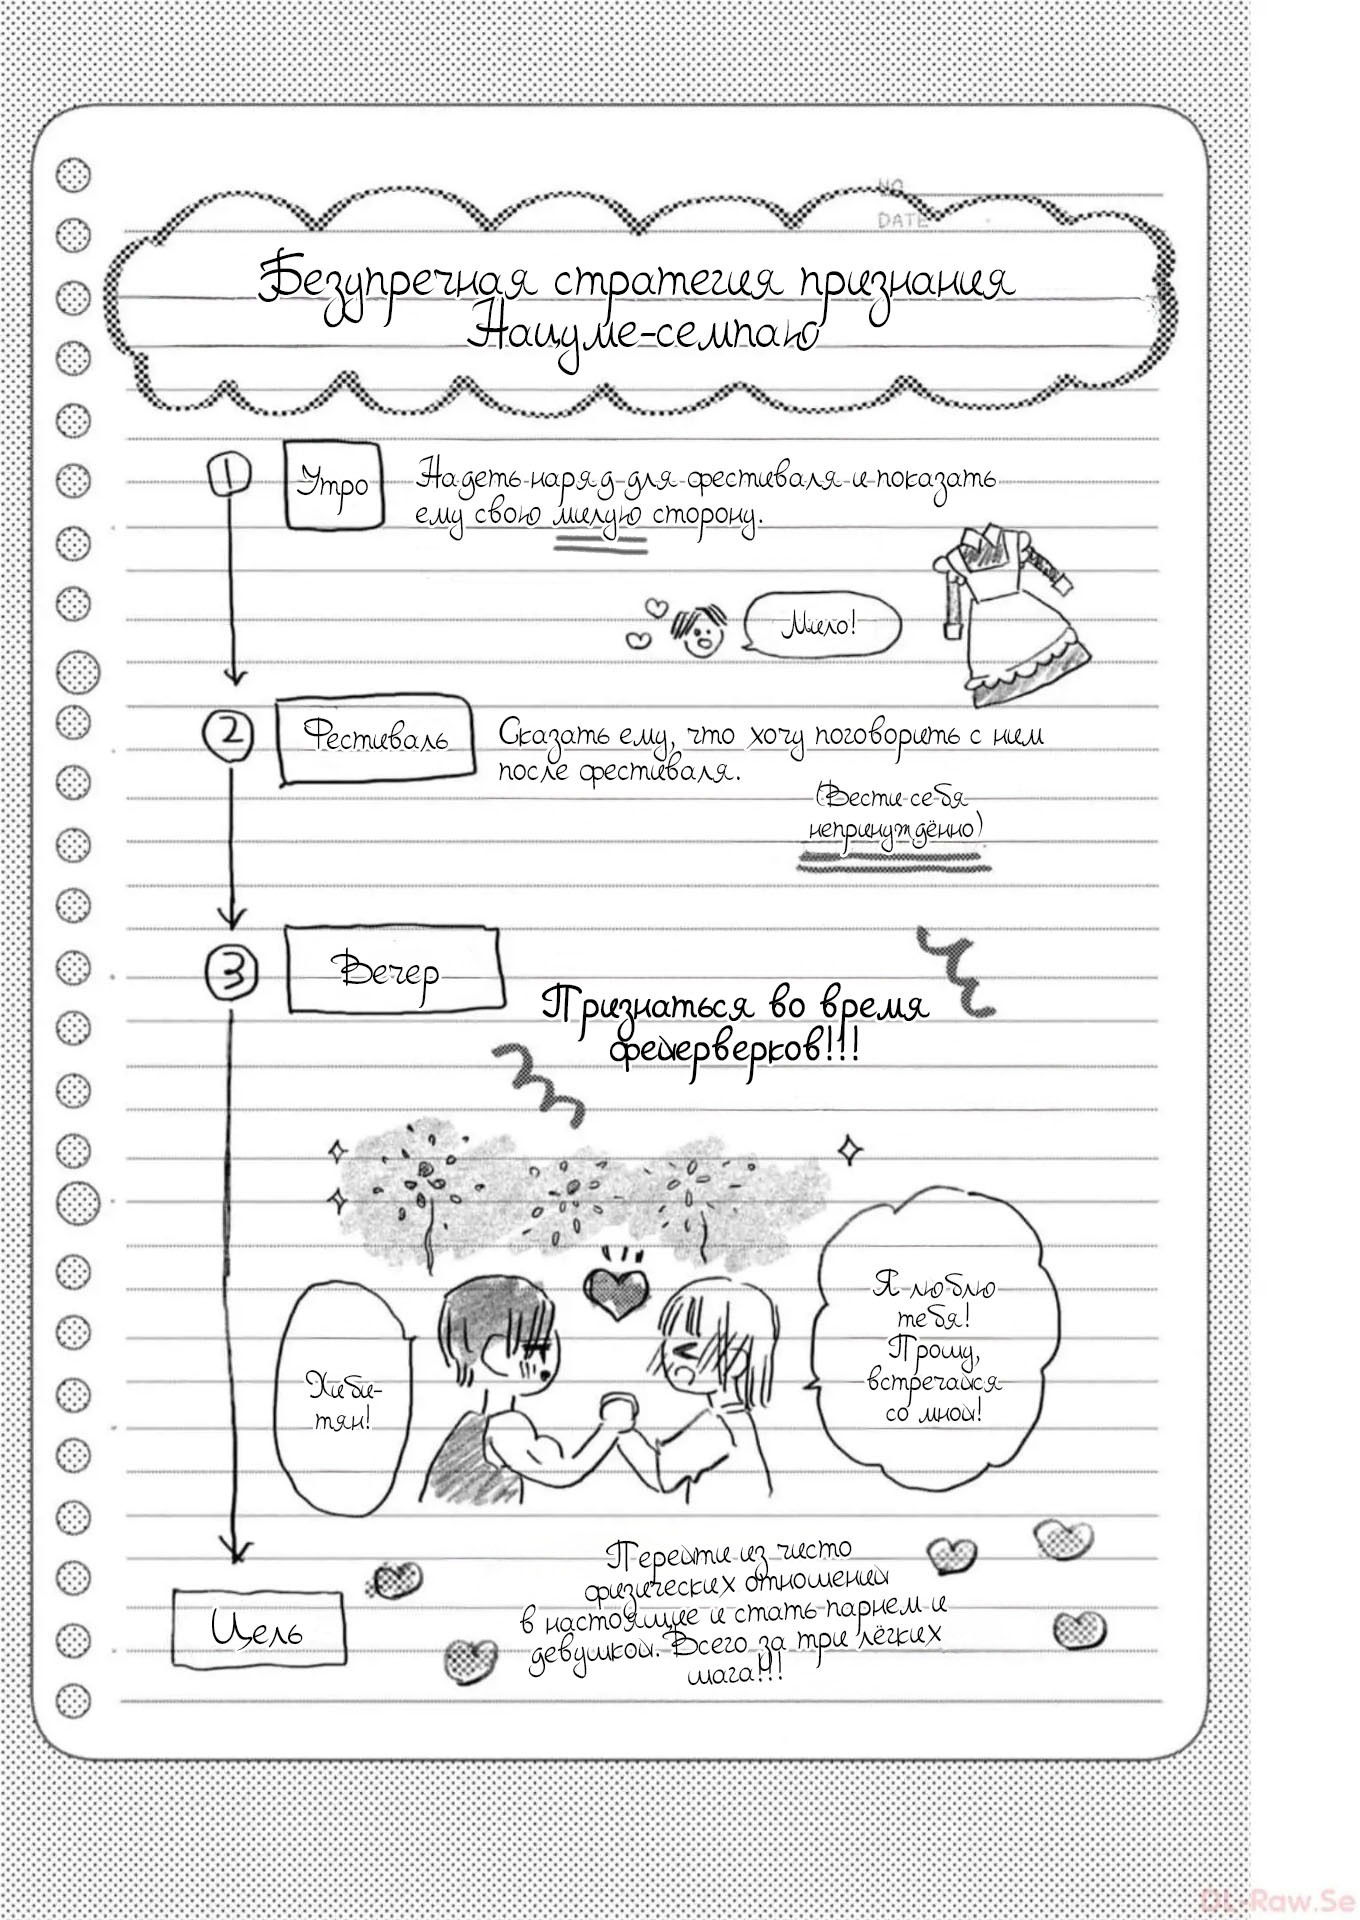 NO.
DATE
Безупречная стратегия признания
Нацуме-семпаю
1
Утро
Надеть наряд для фестиваля и показать
ему свою милую сторону.
Мило!
2
Фестиваль
Сказать ему, что хочу поговорить с ним
после фестиваля.
(Вести себя
непринуждённо)
3
Вечер
Признаться во время
фейерверков!!!
Хиби-
тян!
Я люблю
тебя!
Прошу,
встречайся
со мной!
Цель
Перейти из чисто
физических отношений
в настоящие и стать парнем и
девушкой. Всего за три лёгких
шага!!!
DL-Raw.Se